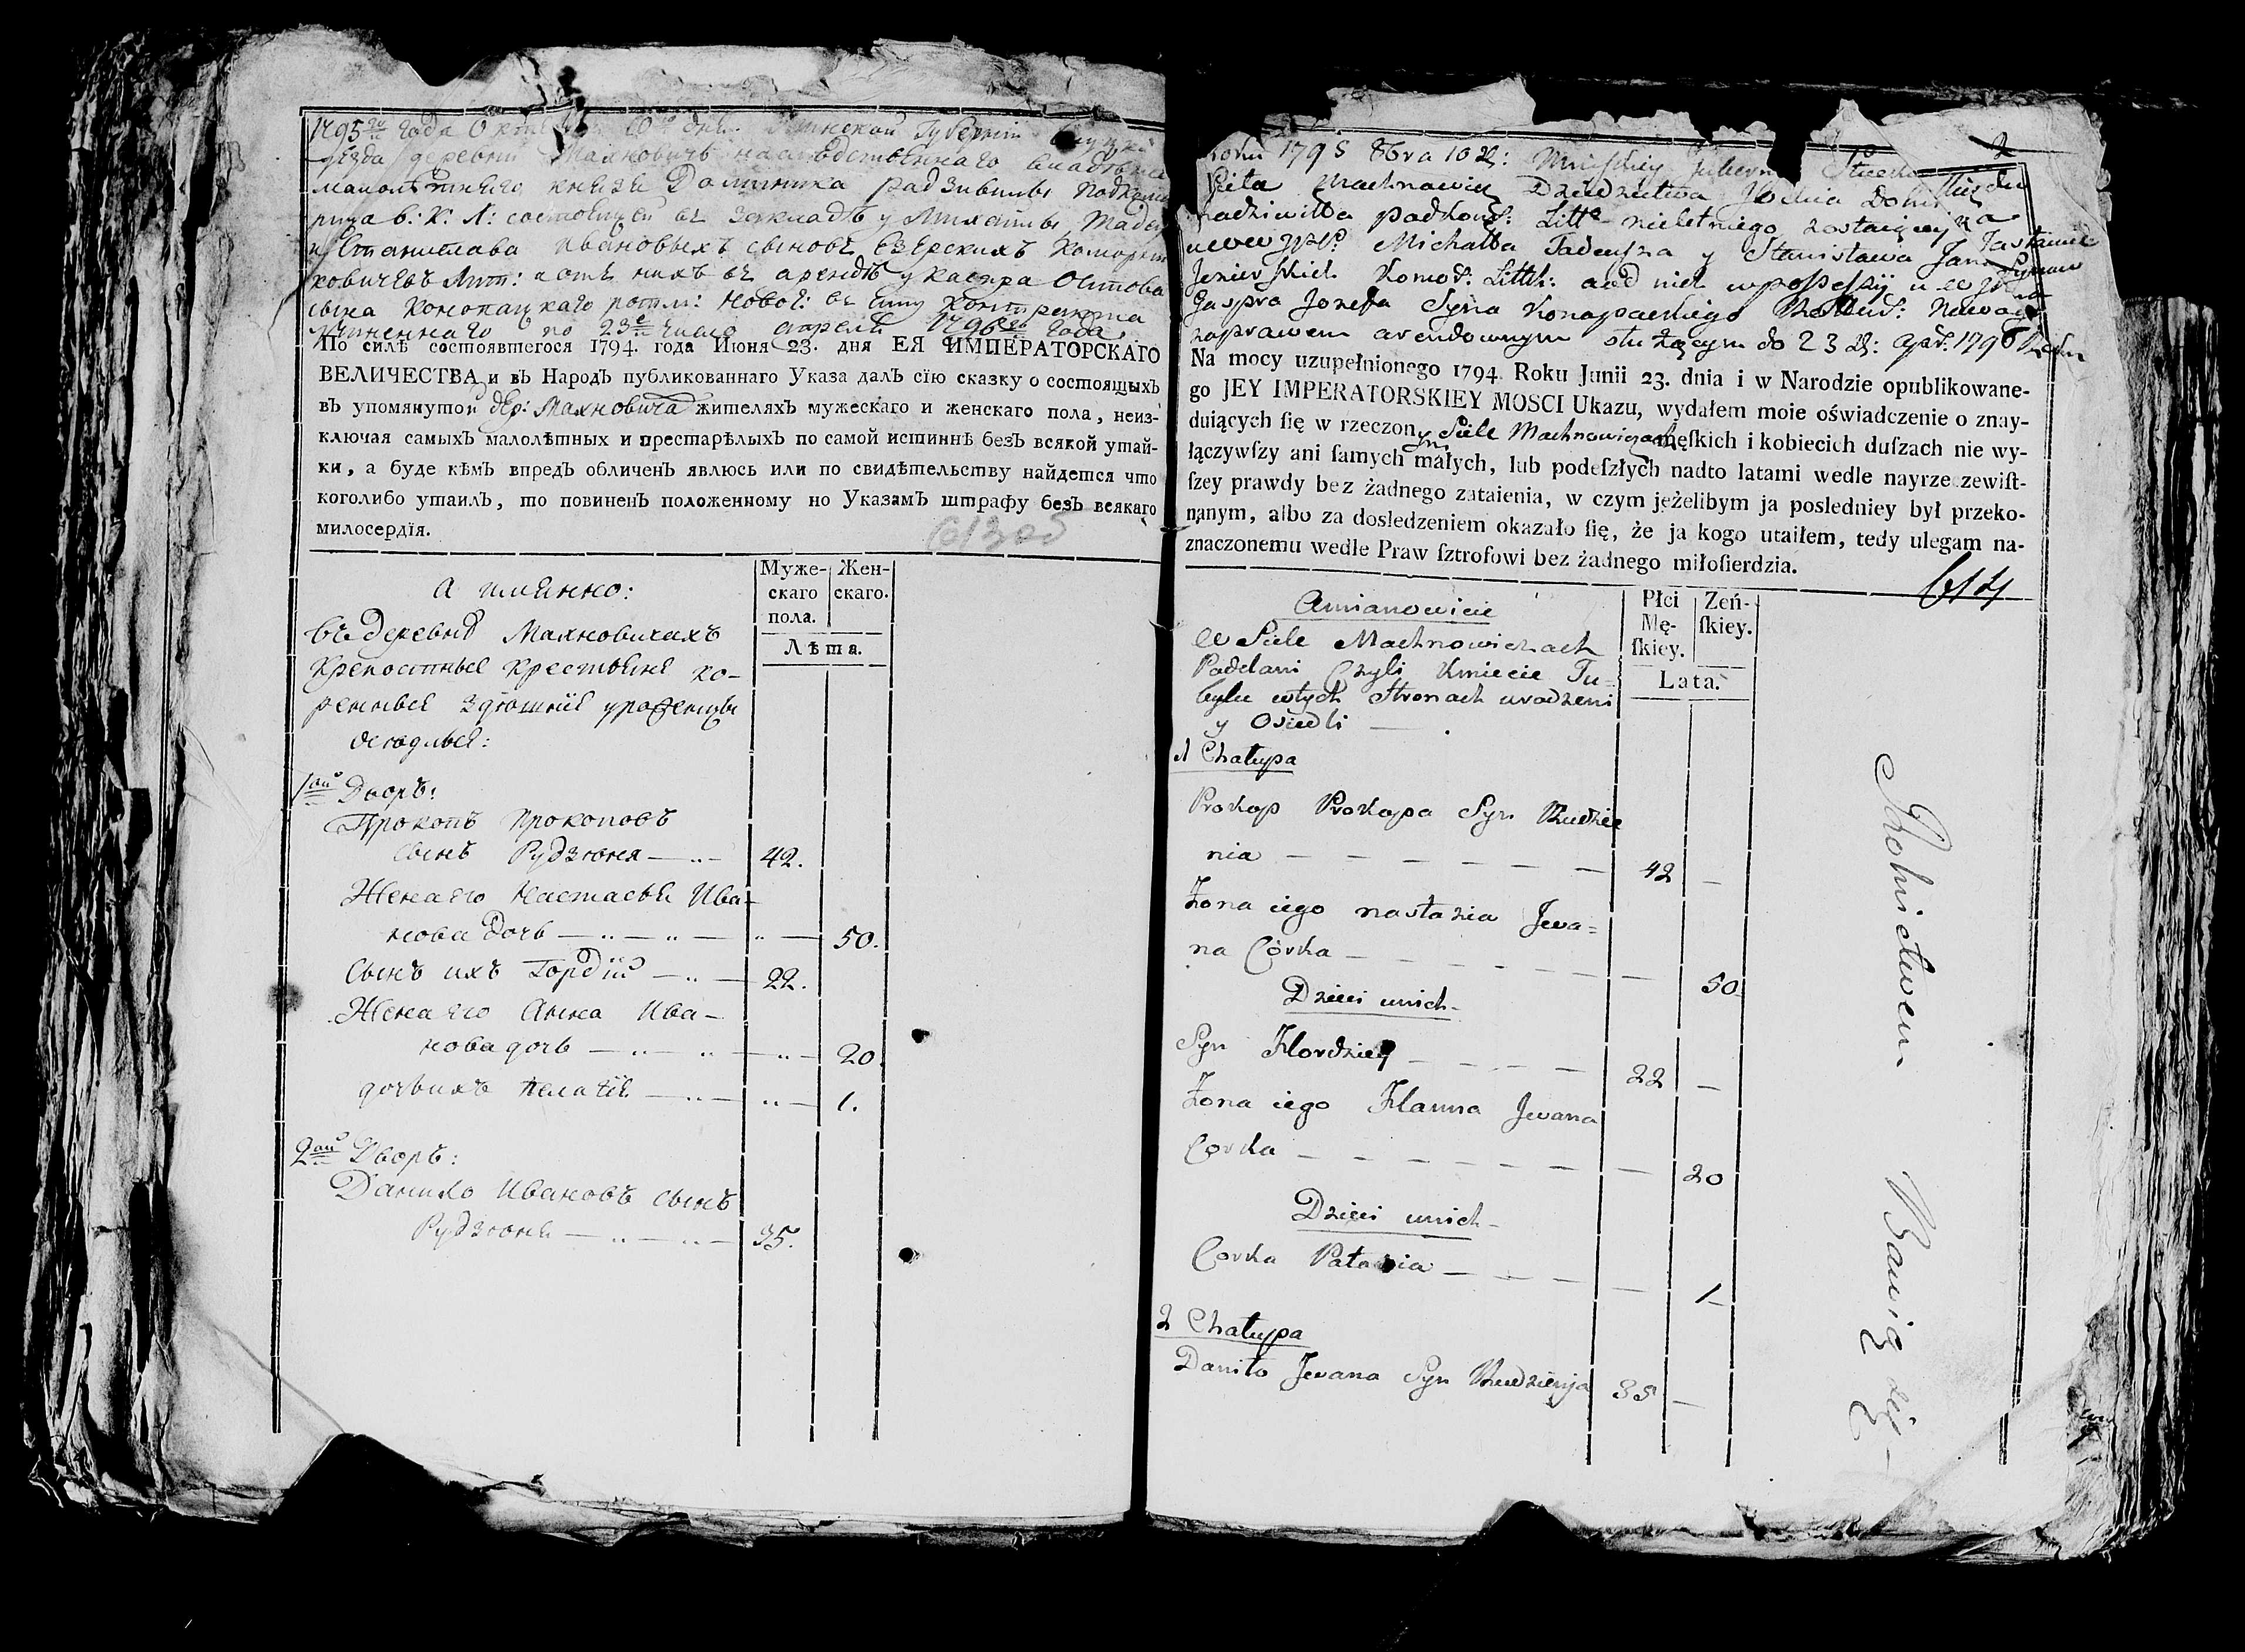 1795го года Октября 10го дня Минской Губернiи Слуцкаго
уезда деревни Махновичъ наследственнаго владенiя
малолѣтнего князя Доминика Радзивила Подкомо
рица В: К: Л: состоящей въ закладѣ у Михаилы, Тадеу
и Станислава Ивановыхъ сыновъ Езерскихъ
ковичевъ Лит: а отъ нихъ въ арендѣ у Каспра Осипова
сына Конопацкаго ротм: Новог: въ силу контракта
по 23е число апреля 1796го года,
По силѣ состоявшегося 1794. года Июня 23. дня ЕЯ ИМПЕРАТОРСКАГО
ВЕЛИЧЕСТВА и въ НародЪ публикованнаго Указа далЪ сїю сказку о состоящыхЪ
вЪ упомянутой дер: Махновича жителяхЪ мужескаго и женскаго пола, неиз-
ключая самыхЪ малолѣтных и престарѣлыхЪ по самой истиннѣ безЪ всякой утай-
ки, а буде кѣмЪ впредЪ обличенЪ явлюсь или по свидѣтельству найдется что
коголибо утаилЪ, то повиненЪ положенному по УказамЪ штрафу безЪ всякаго
милосердїя.
613об
а имянно:
Муже-
скаго
пола.
Жен-
скаго.
Лѣта.
Въ деревне Махновичахъ
крепостные крестьяне ко-
ренные здешнiе уроженцы
1ой Дворъ:
Прокопъ Прокоповъ
сынъ Рудзюня — 42.
Жена его Настасья Ива-
нова дочь — 50.
Сынъ ихъ Гордiй — 22.
Жена его Анна Ива-
нова дочь — 20.
дочь ихъ Пелагiя — 1.
2ой Дворъ:
Данило Ивановъ сынъ
Рудзюня — 35.
2
Roku 1795 8bra 10 D: Mińskiey Gubernii Słuckiego
Sieła Machnowicz Dziedzictwa
Radziwiłła podkom: Litt: nieletniego zostaiącey
Michałła Tadeusza y Stanisława Jana
Jezierskich Komor: Litth: a od nich w possessyi
Gaspra Jozefa Syna Konopackiego Nowogr
za prawem arendownym służącym do 23 D: apr: 1796 Roku
Na mocy uzupełnionego 1794. Roku Junii 23. dnia i w Narodzie opublikowane-
go JEY IMPERATORSKIEY MOSCI Ukazu, wydałem moie oświadczenie o znay-
duiących ſię w rzeczonym Siele Machnowiczach męſkich i kobiecich duſzach nie wy-
łączywſzy ani ſamych małych, lub podeſzłych nadto latami wedle nayrzeczewiſt-
ſzey prawdy bez żadnego zataienia, w czym jeżelibym ja posledniey był przeko-
nanym, albo za dosledzeniem okazało ſię, że ja kogo utaiłem, tedy ulegam na-
znaczonemu wedle Praw ſztrofowi bez żadnego miłoſierdzia.
614
Amianowicie
Płci
Mę-
ſkiey.
Zeń-
ſkiey.
Lata.
w Siele Machnowiczach
Poddani Czyli Kmiecie Tu-
bylce w tych Stronach urodzeni
y Osiedli —
1 Chałupa
Prokop Prokopa Syn Rudzie
nia — 42 —
Żona iego nastazia Jwa=
na Córka — 50
Dzieci u nich
Syn Hordziey — 22 —
Żona iego Hanna Jwana
Corka — 20
Dzieci u nich
Corka Patazia — 1
2 Chałupa
Daniło Jwana Syn Rudzienja 35 —